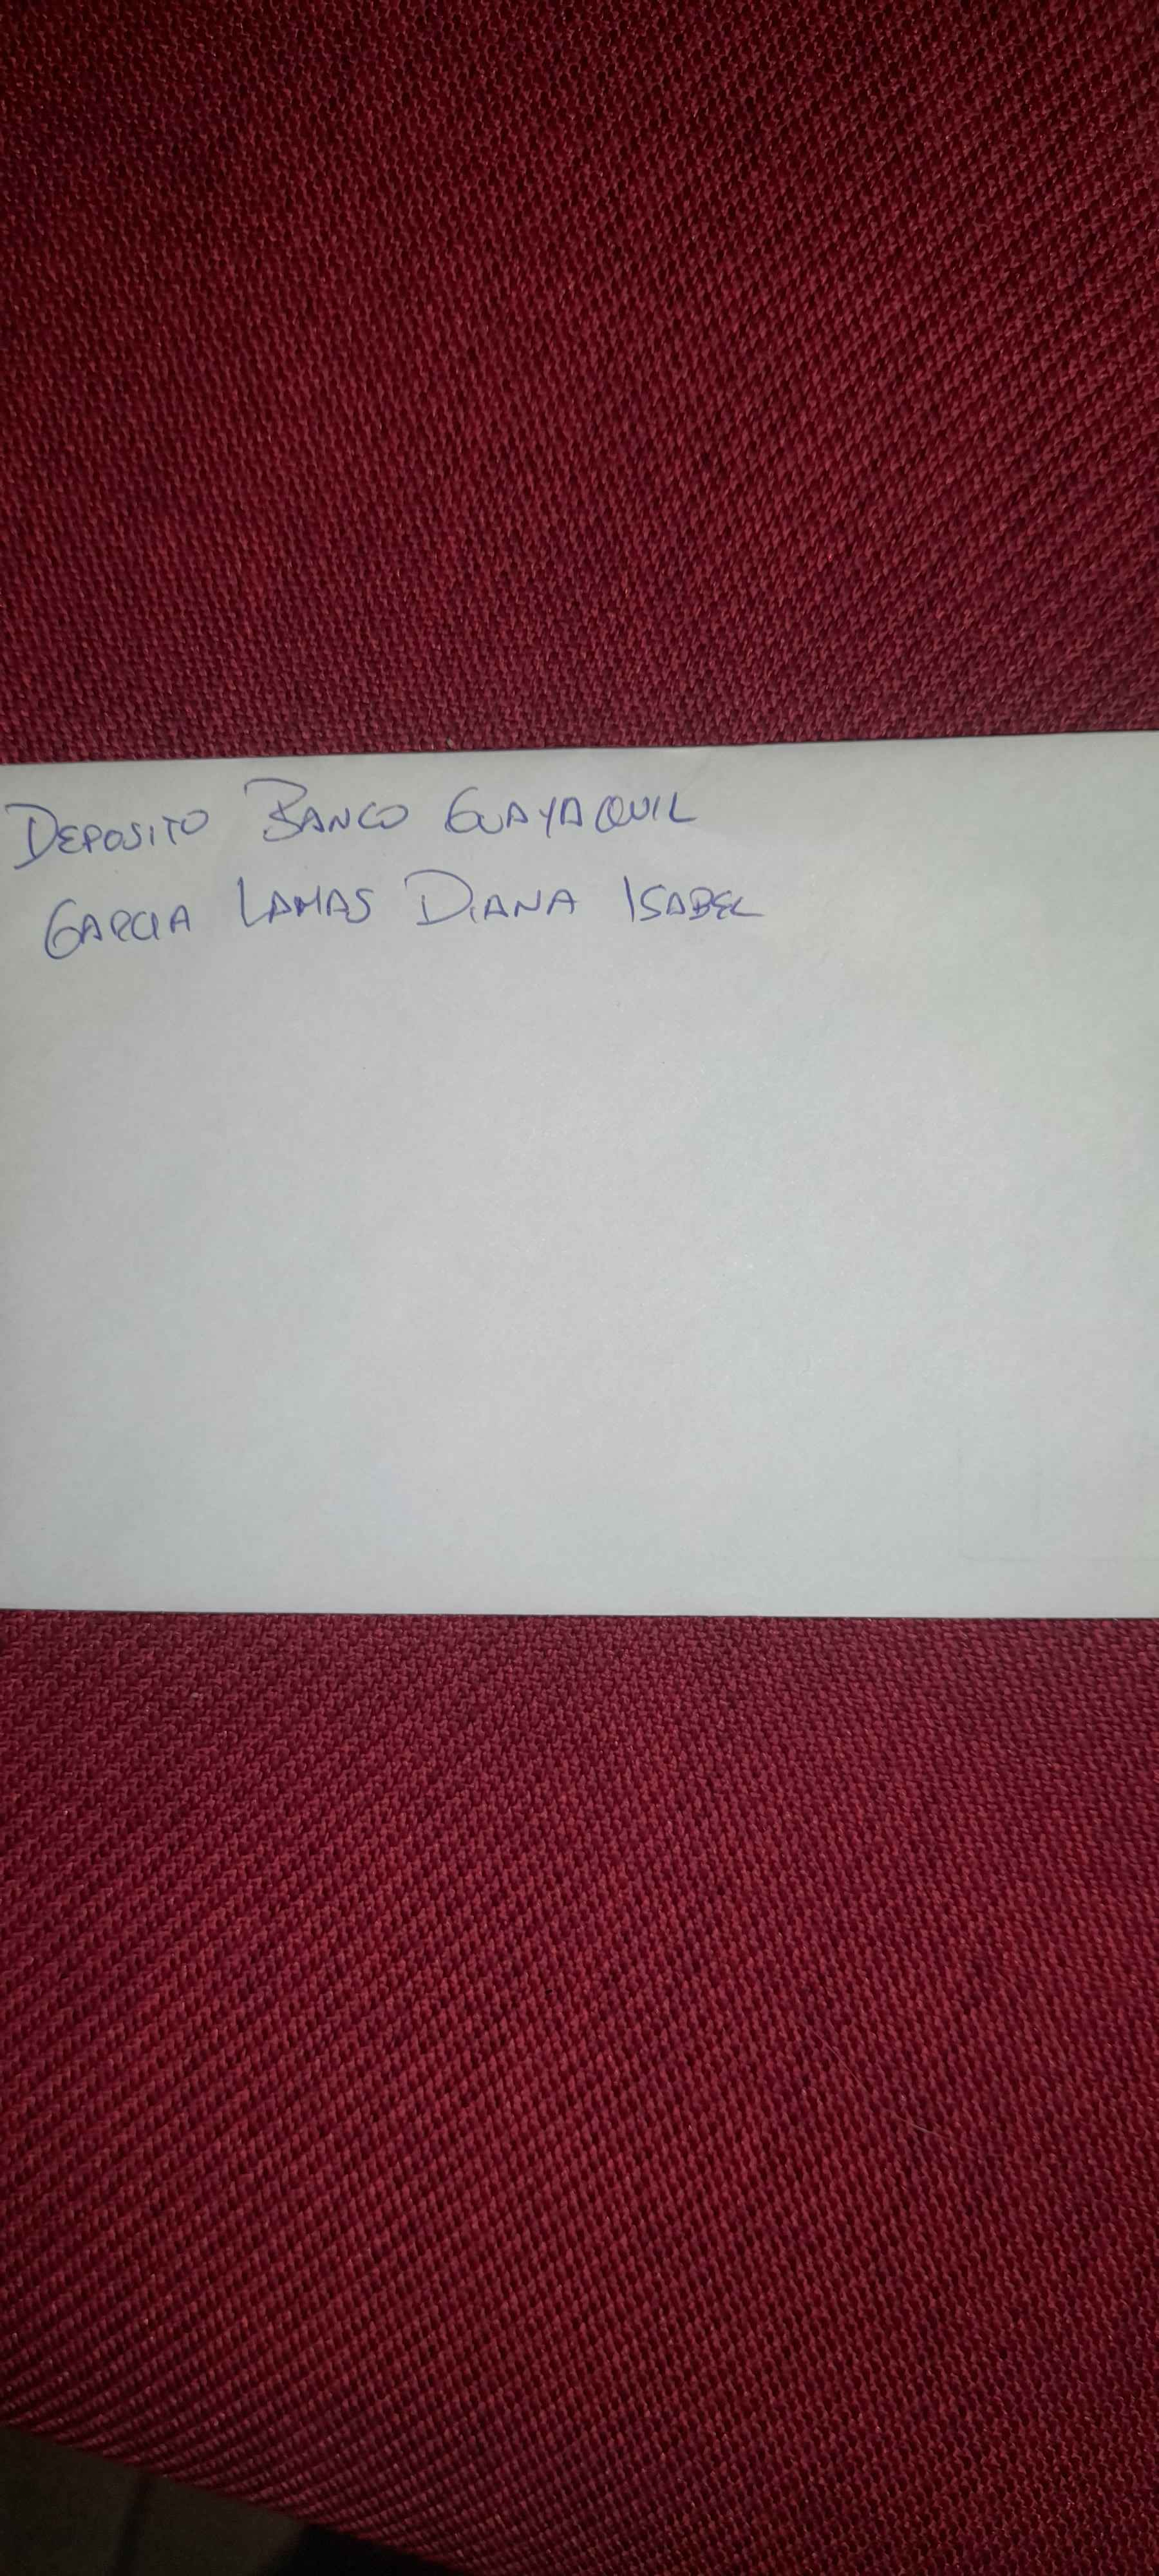 DEPOSITO BANCO GUAYAQUIL
GARCIA LAMAS DIANA ISABEL